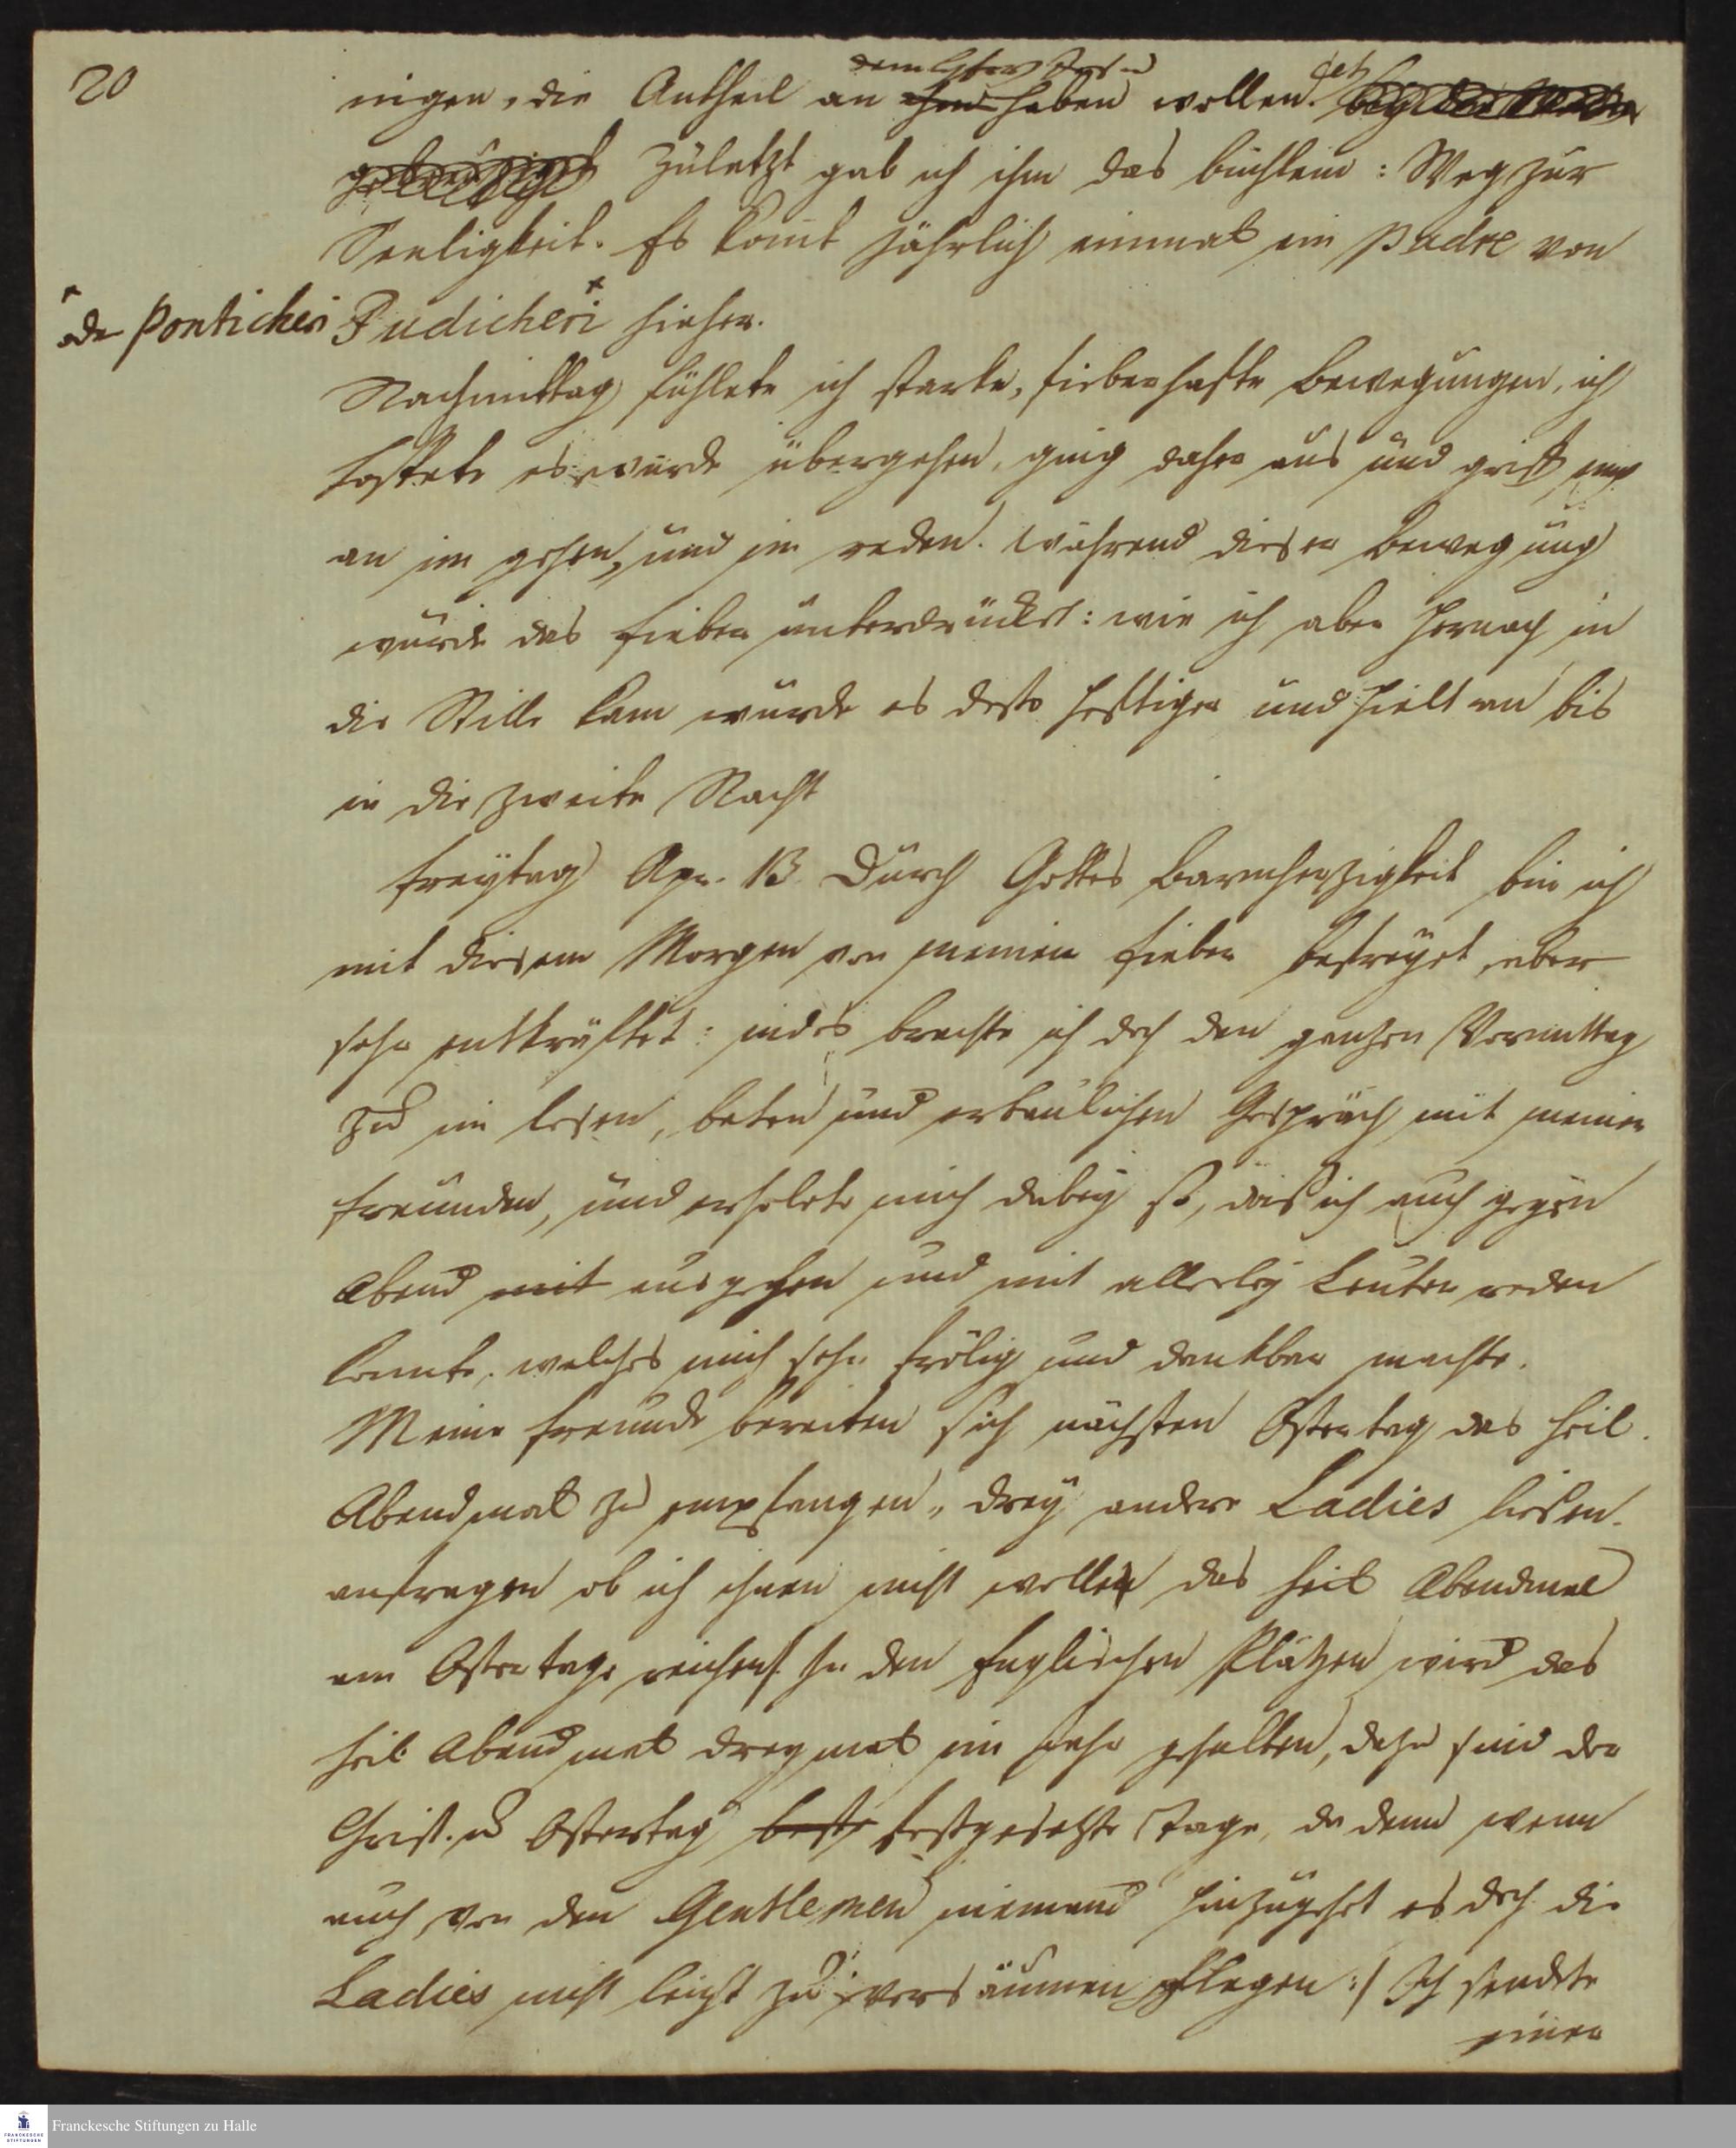 20
dem HErrn Jesu
nigen, die Antheil an ihm haben wollen.
Zuletzt gab ich ihm das büchlein: Weg zur
Seeligkeit. Es komt jährlich einmal ein Padre von
* oder Ponticheri
Pudicheri * hieher.
Nachmittag fühlete ich starke, fieberhafte bewegungen, ich
hoffete es würde übergehen, ging daher aus und griff mich
an im gehen, und im reden. während dieser bewegung
wurde das fieber unterdrückt: wie ich aber hernach in
die Stille kam wurde es desto heftiger und hielt an bis
in die zweite Nacht
Freytag Apr. 13. Durch Gottes barmherzigkeit bin ich
mit diesem Morgen von meinem fieber befreyet, aber
sehr entkräftet: indes brachte ich doch den ganzen Vormittag
zu im lesen, beten und erbaulichen Gespräch mit meinen
freunden, und erholete mich dabey so, daß ich auch gegen
Abend mit ausgehen und mit allerley Leuten reden
konte, welches mich sehr frölig und dankbar machte.
Meine freunde bereiten sich nächsten Ostertag das heil.
Abendmal zu empfangen, drey andere Ladies liesen
anfragen ob ich ihnen nicht wollen das heil Abendmal
am Ostertage reichen /: In den Englischen Plätzen wird das
heil. Abendmal dreymal im Jahr gehalten, dazu sind der
Christ. u Ostertag beste festgesetzte Tage, da denn wenn
auch von den Gentlemen niemand hinzugehet es doch die
Ladies nicht leicht zu versäumen pflegen :/ Ich sendete
einen
Franckesche Stiftungen zu Halle